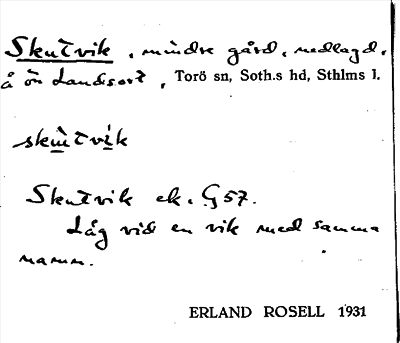 Skutvik, mindre gård, nedlagd,
å ön Landsort, Torö sn, Soth.s hd, Sthlms l.
skùtvìk
Skutvik ek. G 57.
Låg vid en vik med samma
namn.
ERLAND ROSELL 1931